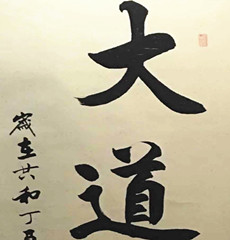 大道
歲在共和丁